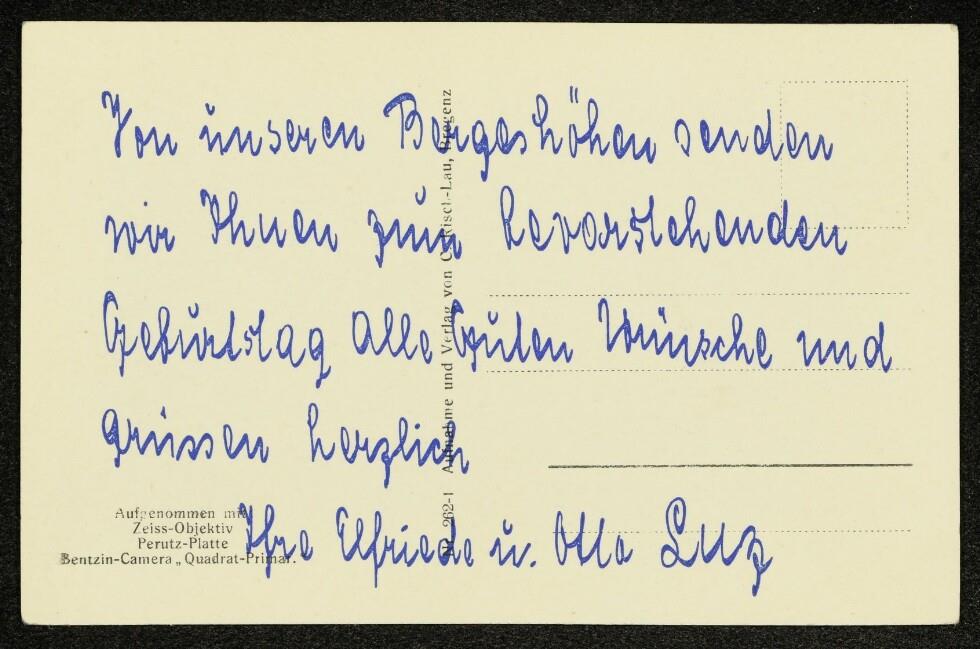 Von unseren Bergeshöhen senden
wir Ihnen zum bevorstehenden
Geburtstag alle Guten Wünsche und
grüssen herzlich
Ihre Elfriede u. Otto Luz
Aufgenommen mit
Zeiss-Objektiv
Perutz-Platte
Bentzin-Camera „Quadrat-Primar.
262-1 Aufnahme und Verlag von Risch-Lau, Bregenz